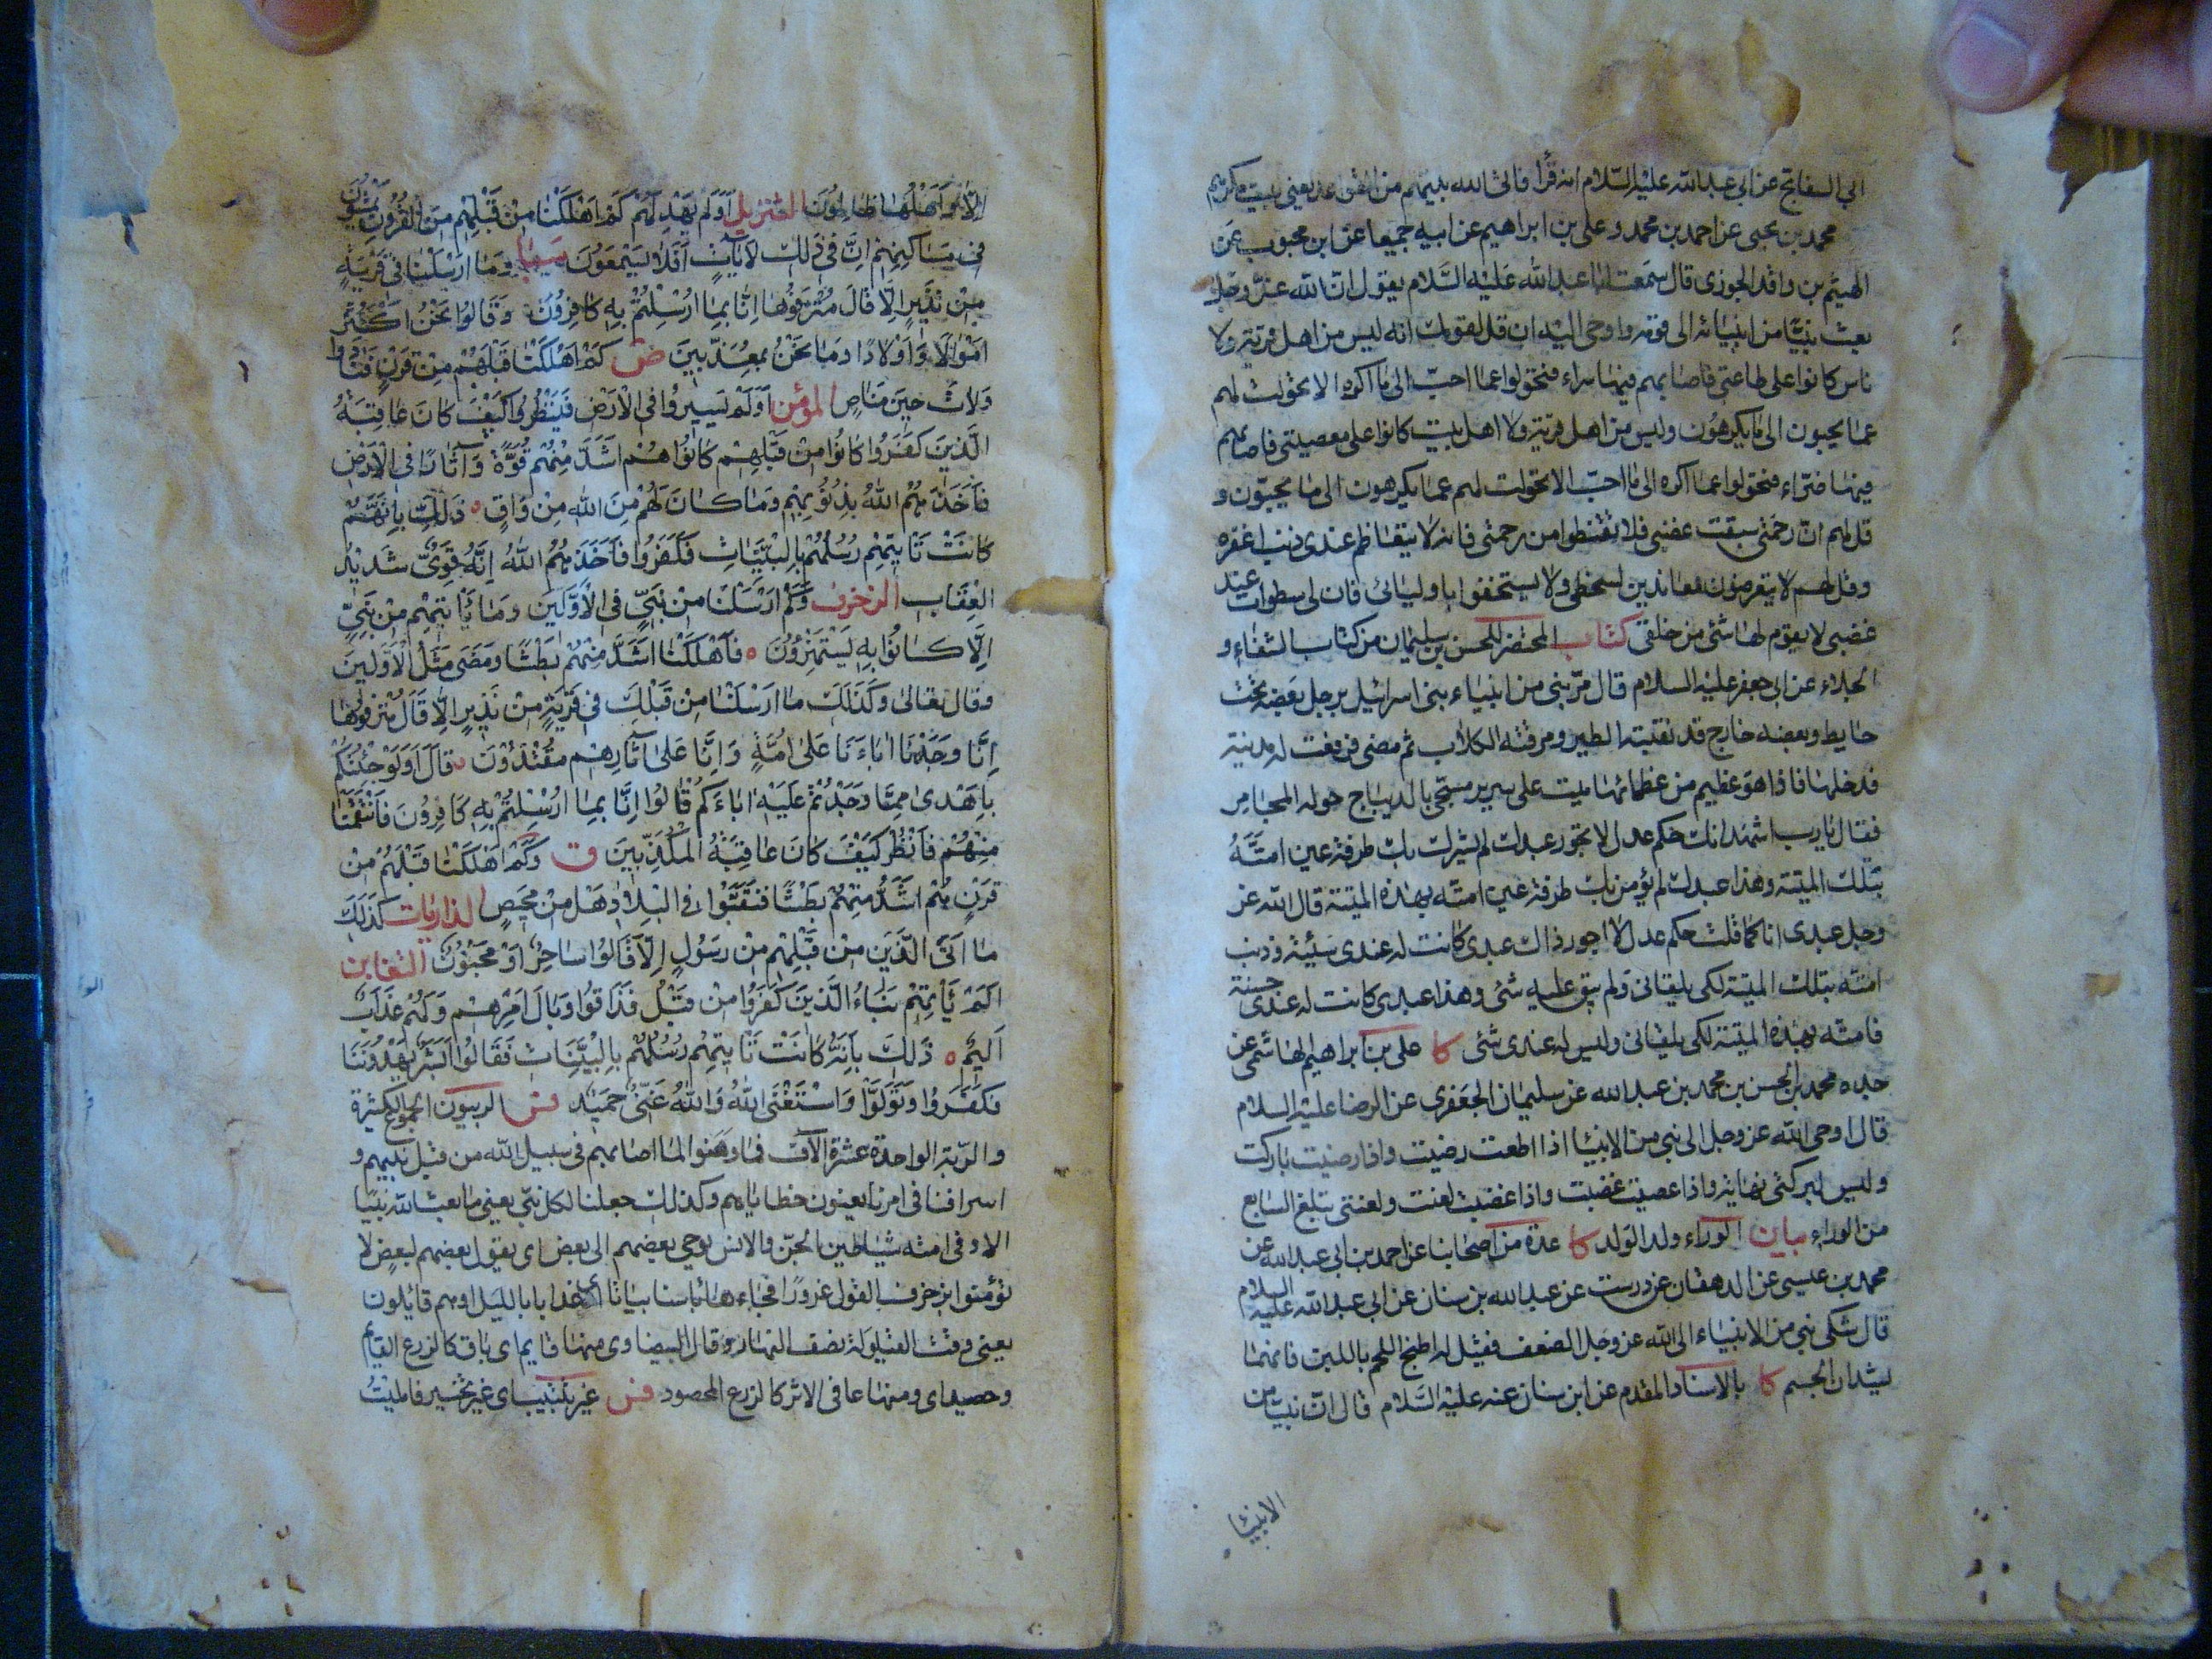 ابي السفاتج عن ابي عبد الله عليه السلام انه قرأ فاتى الله بيتهم من القواعد يعني بيت مكرهم
محمد بن يحيى عن احمد بن محمد وعلي بن ابراهيم عن ابيه جميعا عن ابن محبوب عن
الهيثم بن واقد الجوزي قال سمعت ابا عبد الله عليه السلام يقول ان الله عز وجل
بعث نبيا من انبيائه الى قومه واوحى اليه ان قل لقومك انه ليس من اهل قرية ولا
ناس كانوا على طاعتي فاصابهم فيها سراء فتحولوا عما احب الى ما اكره الا تحولت لهم
عما يحبون الى ما يكرهون وليس من اهل قرية ولا اهل بيت كانوا على معصيتي فاصابهم
فيها ضراء فتحولوا عما اكره الى ما احب الا تحولت لهم عما يكرهون الى ما يحبون و
قل لهم ان رحمتي سبقت غضبي فلا تقنطوا من رحمتي فانه لا يتعاظم عندي ذنب اغفره
وقل لهم لا يتعرضون معاندين لسخطي ولا يستخفوا باوليائي فان لي سطوات عند
غضبي لا يقوم لها شئ من خلقي كتاب المحتضر للحسن بن سليمان من كتاب الشفاء و
الجلاء عن ابي جعفر عليه السلام قال مر نبي من انبياء بني اسرائيل برجل بعضه تحت
حايط وبعضه خارج قد نقبته الطير ومزقته الكلاب ثم مضى فرفعت له مدينة
فدخلها فاذا هو عظيم من عظمائها ميت على سرير مسجى بالديباج حوله المجامر
فقال يارب اشهد انك حكم عدل لا تجور عبدك لم يشرك بك طرفة عين امته
بتلك الميتة وهذا عبدك لم يؤمن بك طرفة عين امته بهذه الميتة قال الله عز
وجل عبدي انا كما قلت حكم عدل لا اجور ذاك عبدي كانت له عندي سيئة وذنب
امته بتلك الميتة لكي يلقاني ولم يبق عليه شئ وهذا عبدي كانت له عندي حسنة
فامته بهذه الميتة لكي يلقاني وليس له عندي شئ كا علي بن ابراهيم الهاشمي عن
جده محمد بن الحسن بن محمد بن عبد الله عن سليمان الجعفري عن الرضا عليه السلام
قال اوحى الله عز وجل الى نبي من الانبيا اذا اطعت رضيت واذا رضيت باركت
وليس لبركتي نهاية واذا عصيت غضبت واذا غضبت لعنت ولعنتي تبلغ السابع
من الوراء بيان الوراء ولد الولد كا عدة من اصحابنا عن احمد بن ابي عبد الله عن
محمد بن عيسى عن الدهقان عن درست عن عبد الله بن سنان عن ابي عبد الله عليه السلام
قال شكى نبي من الانبياء الى الله عز وجل الضعف فقيل له اطبخ اللحم باللبن فانهما
يشدان الجسم كا بالاسناد المقدم عن ابن سنان عنه عليه السلام قال ان نبيا من
الانبيا
الا واهلها ظالمون التنزيل اَوَلَم يَهدِ لَهُم كَم اَهلَكنا مِن قَبلِهِم مِنَ القُرونِ يَمشون
في مساكنهم ان في ذلك لايات افلا يسمعون سبا وما ارسلنا في قرية
من نذير الا قال مترفوها انا بما ارسلتم به كافرون وقالوا نحن اكثر
اموالا واولادا وما نحن بمعذبين ص كم اهلكنا قبلهم من قرن فنادوا
ولات حين مناص المؤمن اولم يسيروا في الارض فينظروا كيف كان عاقبة
الذين كفروا كانوا من قبلهم كانوا هم اشد منهم قوة وآثارا في الارض
فاخذهم الله بذنوبهم وما كان لهم من الله من واق ذلك بانهم
كانت تأتيهم رسلهم بالبينات فكفروا فاخذهم الله انه قوي شديد
العقاب الزخرف وكم ارسلنا من نبي في الاولين وما يأتيهم من نبي
الا كانوا به يستهزؤن فاهلكنا اشد منهم بطشا ومضى مثل الاولين
وقال تعالى وكذلك ما ارسلنا من قبلك في قرية من نذير الا قال مترفوها
انا وجدنا اباءنا على امة وانا على آثارهم مقتدون قال اولو جئتكم
باهدى مما وجدتم عليه اباءكم قالوا انا بما ارسلتم به كافرون فانتقمنا
منهم فانظر كيف كان عاقبة المكذبين ق وكم اهلكنا قبلهم من
قرن هم اشد منهم بطشا فنقبوا في البلاد هل من محيص الذاريات كذلك
ما اتى الذين من قبلهم من رسول الا قالوا ساحر او مجنون التغابن
الم يأتهم نباء الذين كفروا من قبل فذاقوا وبال امرهم ولهم عذاب
اليم ذلك بانه كانت تأتيهم رسلهم بالبينات فقالوا ابشر يهدوننا
فكفروا وتولوا واستغنى الله والله غني حميد فس الربيون الجموع الكثيرة
والربة الواحدة عشرة الآف فما وهنوا لما اصابهم في سبيل الله من قبل نبيهم و
اسرافنا في امرنا يعنون خطاياهم وكذلك جعلنا لكل نبي يعني ما بعث الله نبيا
الا وفي امته شياطين الجن والانس يوحي بعضهم الى بعض اى يقول بعضهم لبعض لا
تؤمنوا بزخرف القول غرورا فجاءها باسنا بياتا اى عذابا بالليل اوهم قائلون
يعني وقت القيلولة نصف النهار وقال البيضاوى منها قايم اى باق كالزرع القايم
وحصيد اى ومنها عافى الاثر كالزرع المحصود فس غير تتبيب اى غير تخسير فامليت